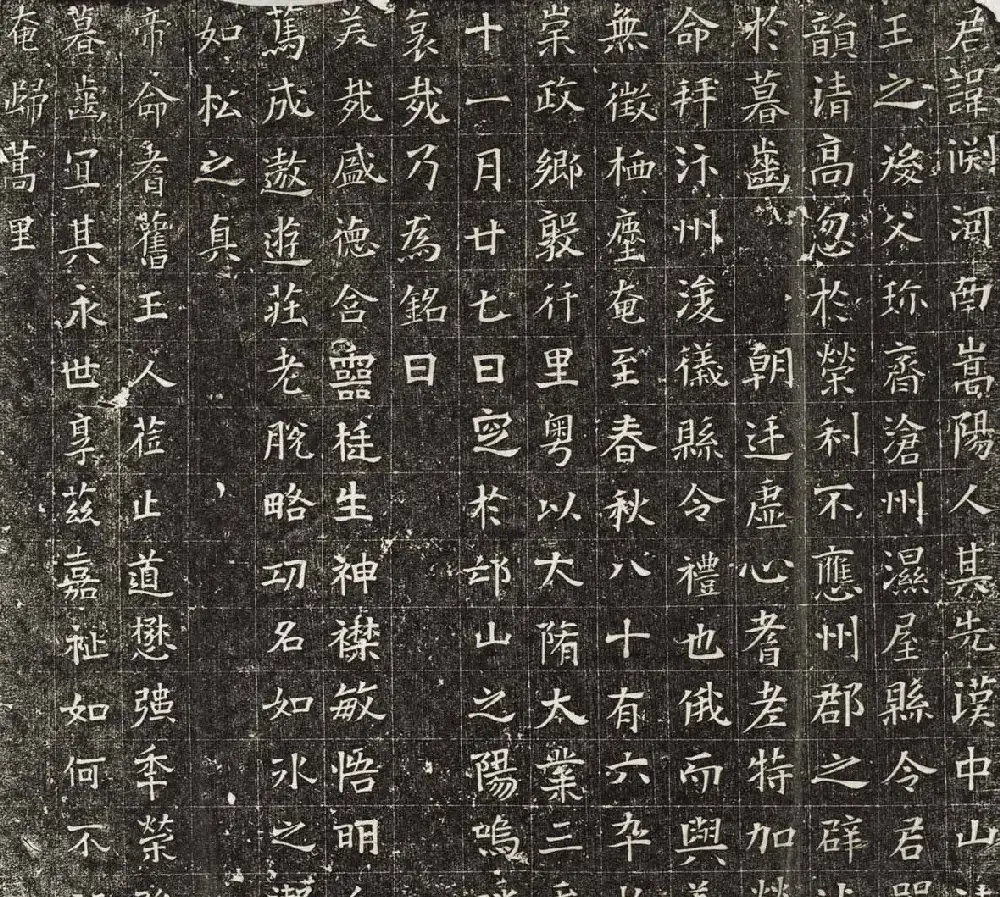 君諱淵河南嵩陽人其先漢中山
王之後父珎齊滄州濕屋縣令君
韻清高忽於榮利不應州郡之辟
於暮齒朝廷虛心耆老特加
命拜汴州浚儀縣令禮也俄而與
無徵栖塵奄至春秋八十有六卒
崇政鄉毅行里粵以大隋大業三
十一月廿七日窆於邙山之陽嗚
哀哉乃為銘曰
美哉盛德含靈挺生神襟敏悟明
蔿成遨遊莊老脫略功名如冰之
如松之貞
帝命耆舊王人莅止道懋強年榮
暮齒宜其永世享茲嘉祉如何不
奄歸蒿里